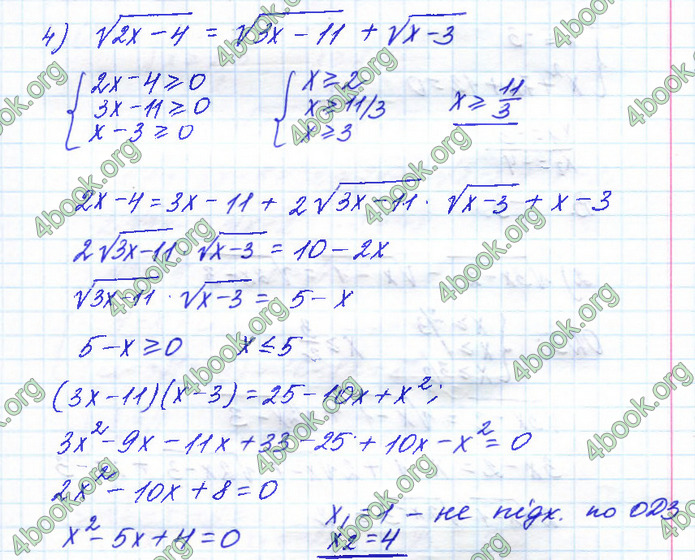 4) √(2x-4) = √(3x-11) + √(x-3)
{ 2x-4≥0 { x≥2
3x-11≥0 x≥11/3 x≥11/3
x-3≥0 x≥3
2x-4=3x-11+2√(3x-11)·√(x-3)+x-3
2√(3x-11)·√(x-3)=10-2x
√(3x-11)·√(x-3)=5-x
5-x≥0 x≤5
(3x-11)(x-3)=25-10x+x²;
3x²-9x-11x+33-25+10x-x²=0
2x²-10x+8=0
x²-5x+4=0 x₁=1 - не підх. по ОДЗ
x₂=4
4book.org